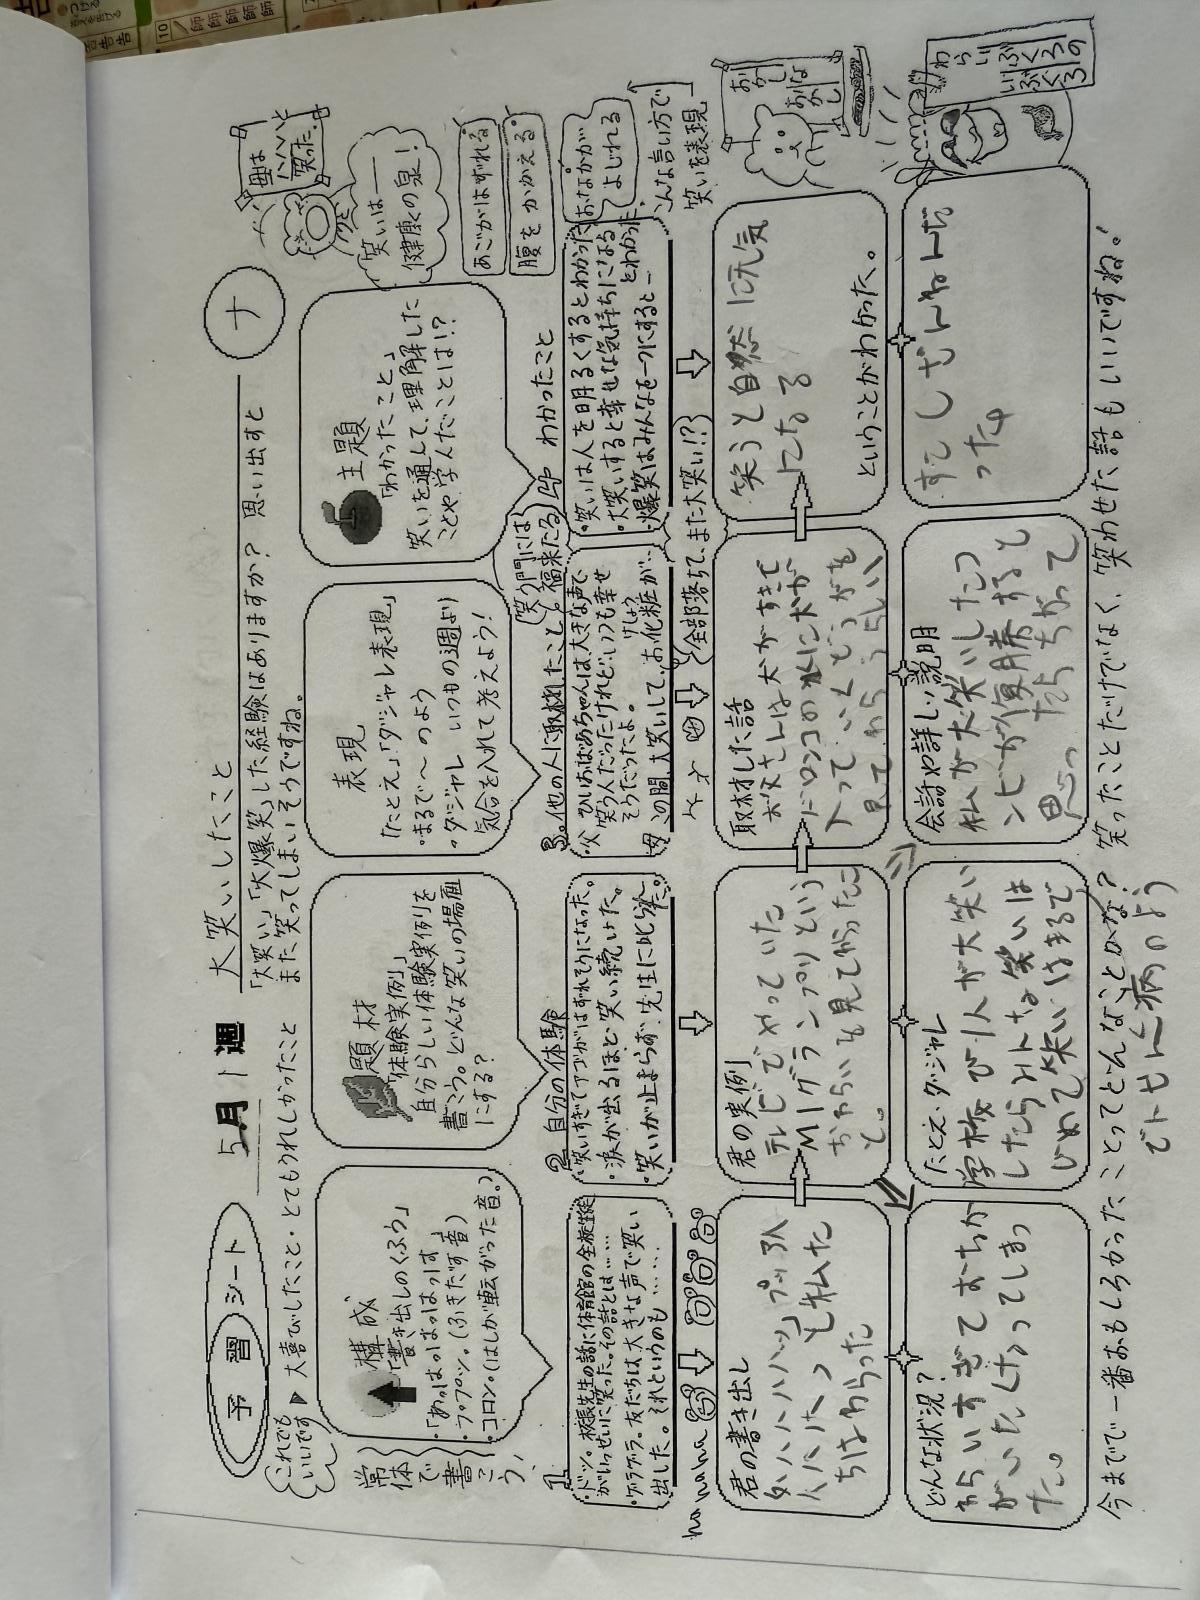 予習シート
5月1週
大笑いしたこと
ナ
これでもいいです
▶大喜びしたこと・とてもうれしかったこと
「大笑い」「大爆笑」した経験はありますか？思い出すと
また笑ってしまいそうですね。
常体で書こう
構成
「書き出しのくふう」
・「あっはっはっはっ」
・ププッ。(ふきだす音)
・コロン。(はしが転がった音。)
題材
「体験実例」
自分らしい体験実例を
書こう。どんな笑いの場面
にする？
表現
「たとえ」「ダジャレ表現」
・まるで〜のよう
・ダジャレ いつもの週より
気合を入れて考えよう！
主題
「わかったこと」
笑いを通して、理解した
ことや学んだことは！？
母は
ハハハと
笑った。
笑いは
健康の泉！
あごがはずれる
腹をかかえる
おなかが
よじれる
こんな言い方で
笑いを表現
1
・ドッ。校長先生の話に体育館の全校生徒
がいっせいに笑った。その話とは……
・ゲラゲラ。友だちは大きな声で笑い
出した。それというのも……
2 自分の体験
・笑いすぎてアゴがはずれそうになった。
・涙が出るほど笑い続けた。
・笑いが止まらず先生に叱られた。
3。他の人に取材したこと
・父 ひいおばあちゃんは、大きな声で
笑う人だったけれど…いつも幸せ
そうだったよ。
母 この間、大笑いして、お化粧が…
けしょう
全部落ちて、また大笑い！？
笑う門には
福来たる
4 わかったこと
・笑いは人を明るくするとわかった
・大笑いすると幸せな気持ちになる
とわかった
・爆笑はみんなを一つにすると―
hahaha
君の書き出し
ハハハハハッ
ちはわらった
君の実例
テレビでやっていた
M1グランプリという
おわらいを見てわらったこ
と。
取材した話
お父さんは犬がすきで
ドロンコの水に犬が
入っていくどうがを
見てわらうらしい
笑うと自然に元気
になる
ということがわかった。
どんな状況？
わらいすぎておちか
がいたくなってしまっ
た。
たとえ・ダジャレ
学校で1人が大笑い
したらみんな笑いは
じめて笑いはまるで
でんせん病のよう
会話や詳しい説明
私が大笑いしたコ
ンビが優勝すると
思っ
たらちがって
すこしざんねんだ
った
わらい
ぶくろの
今までで一番おもしろかったことってどんなことかな？笑ったことだけでなく、笑わせた話もいいですね！